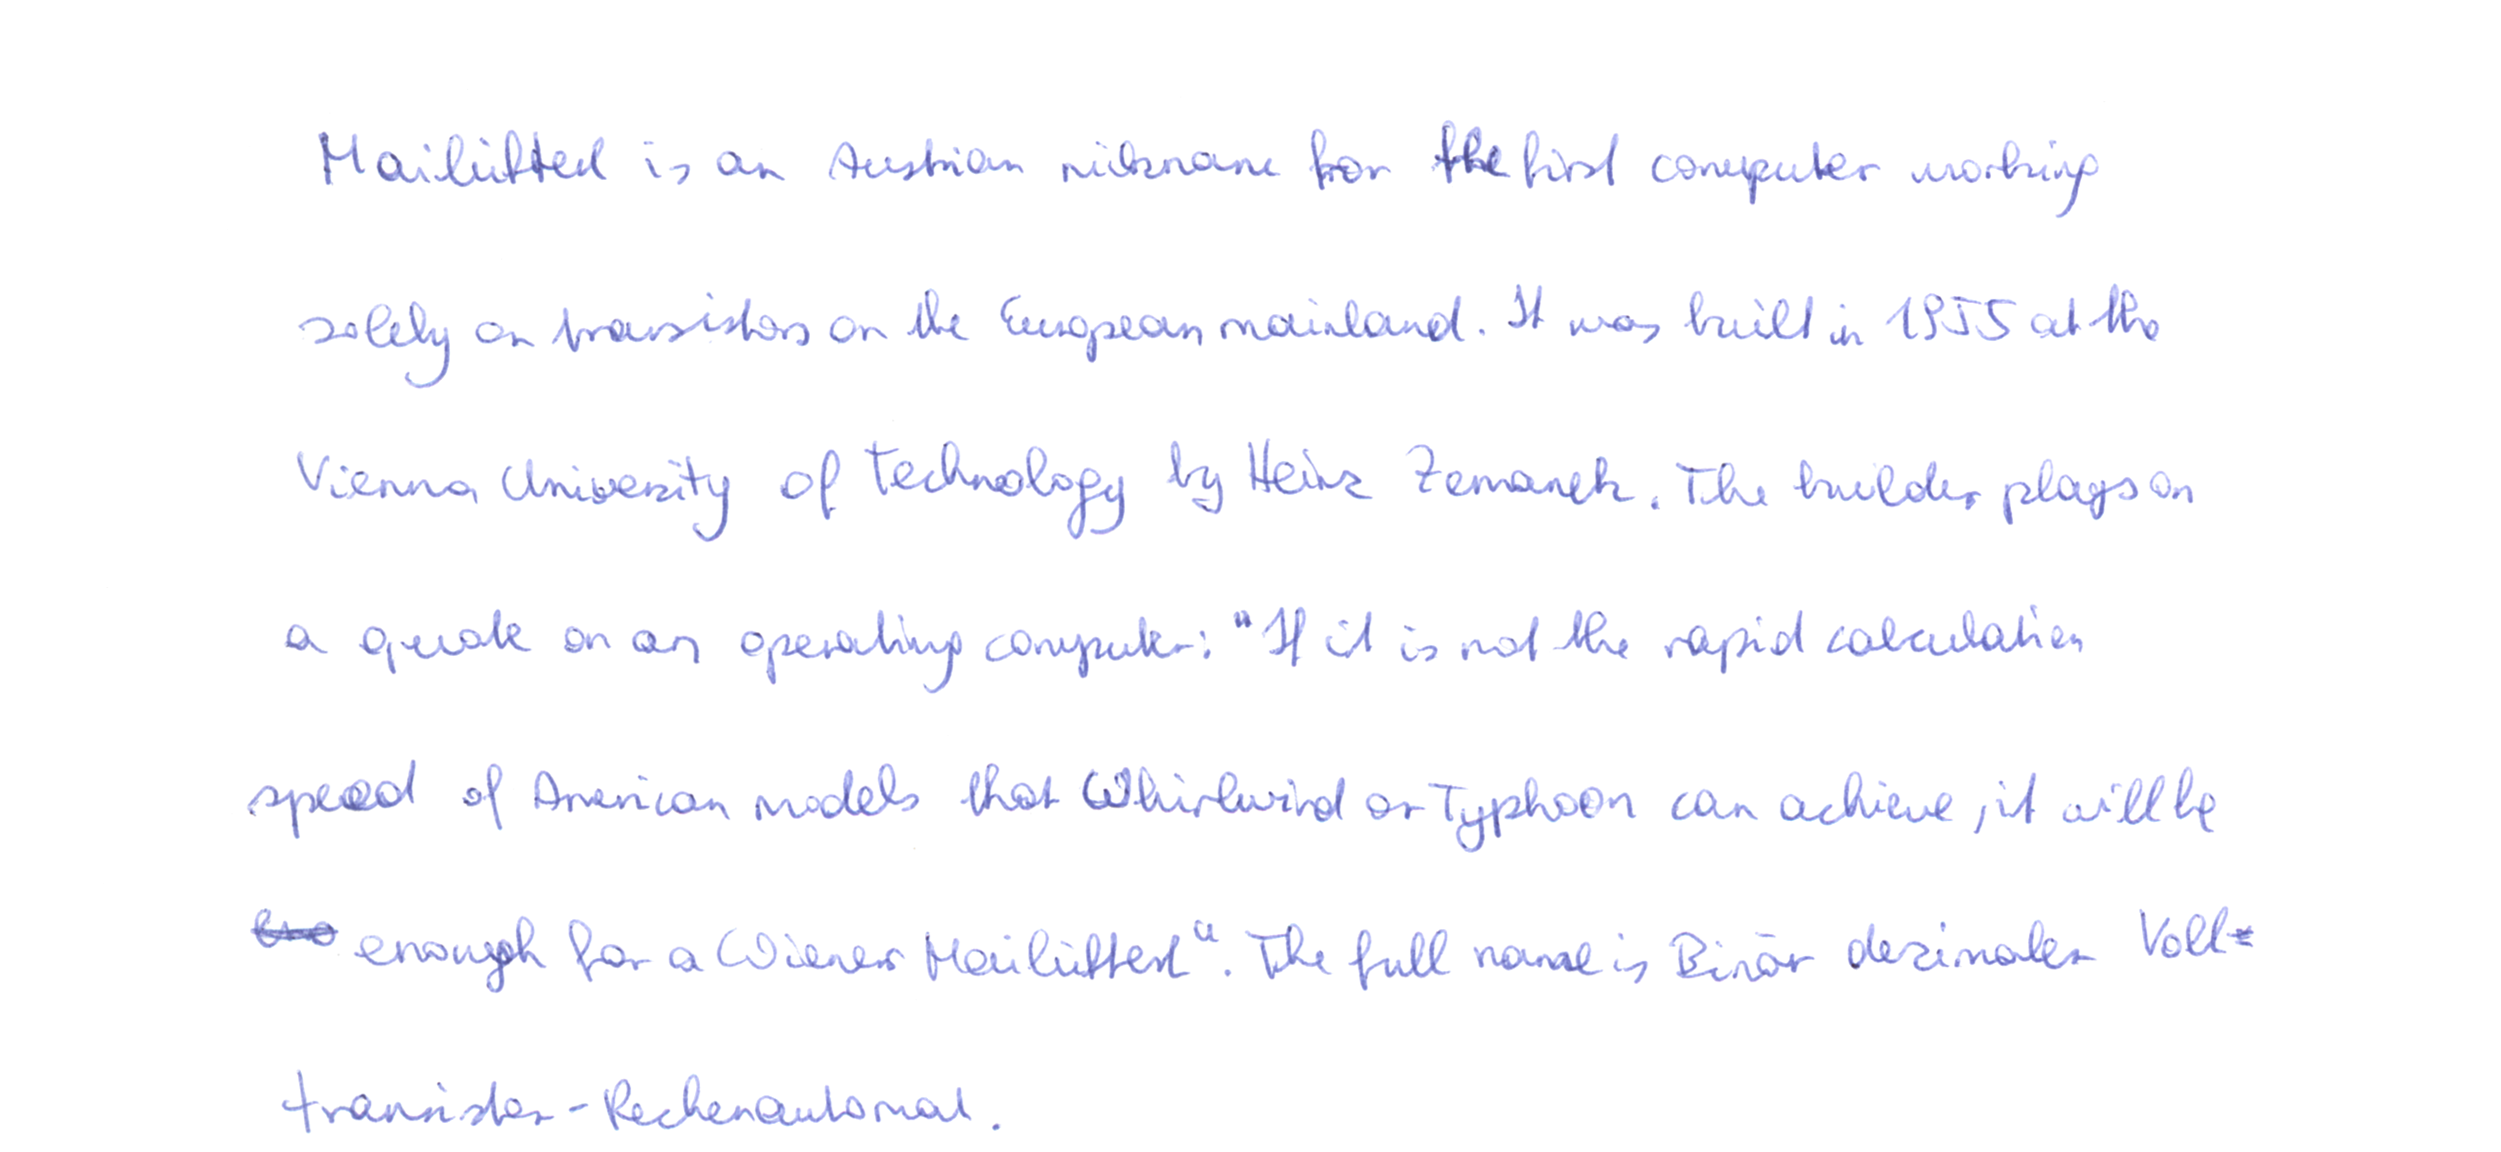 Mailüfterl is an Austrian nickname for the first computer working
solely on transistors on the European mainland. It was built in 1955 at the
Vienna University of Technology by Heinz Zemanek. The builder plays on
a quote on an operating computer: "If it is not the rapid calculation
speed of American models that Whirlwind or Typhoon can achieve, it will be
enough for a Wiener Mailüfterl". The full name is Binär dezimaler Voll=
transistor-Rechenautomat.